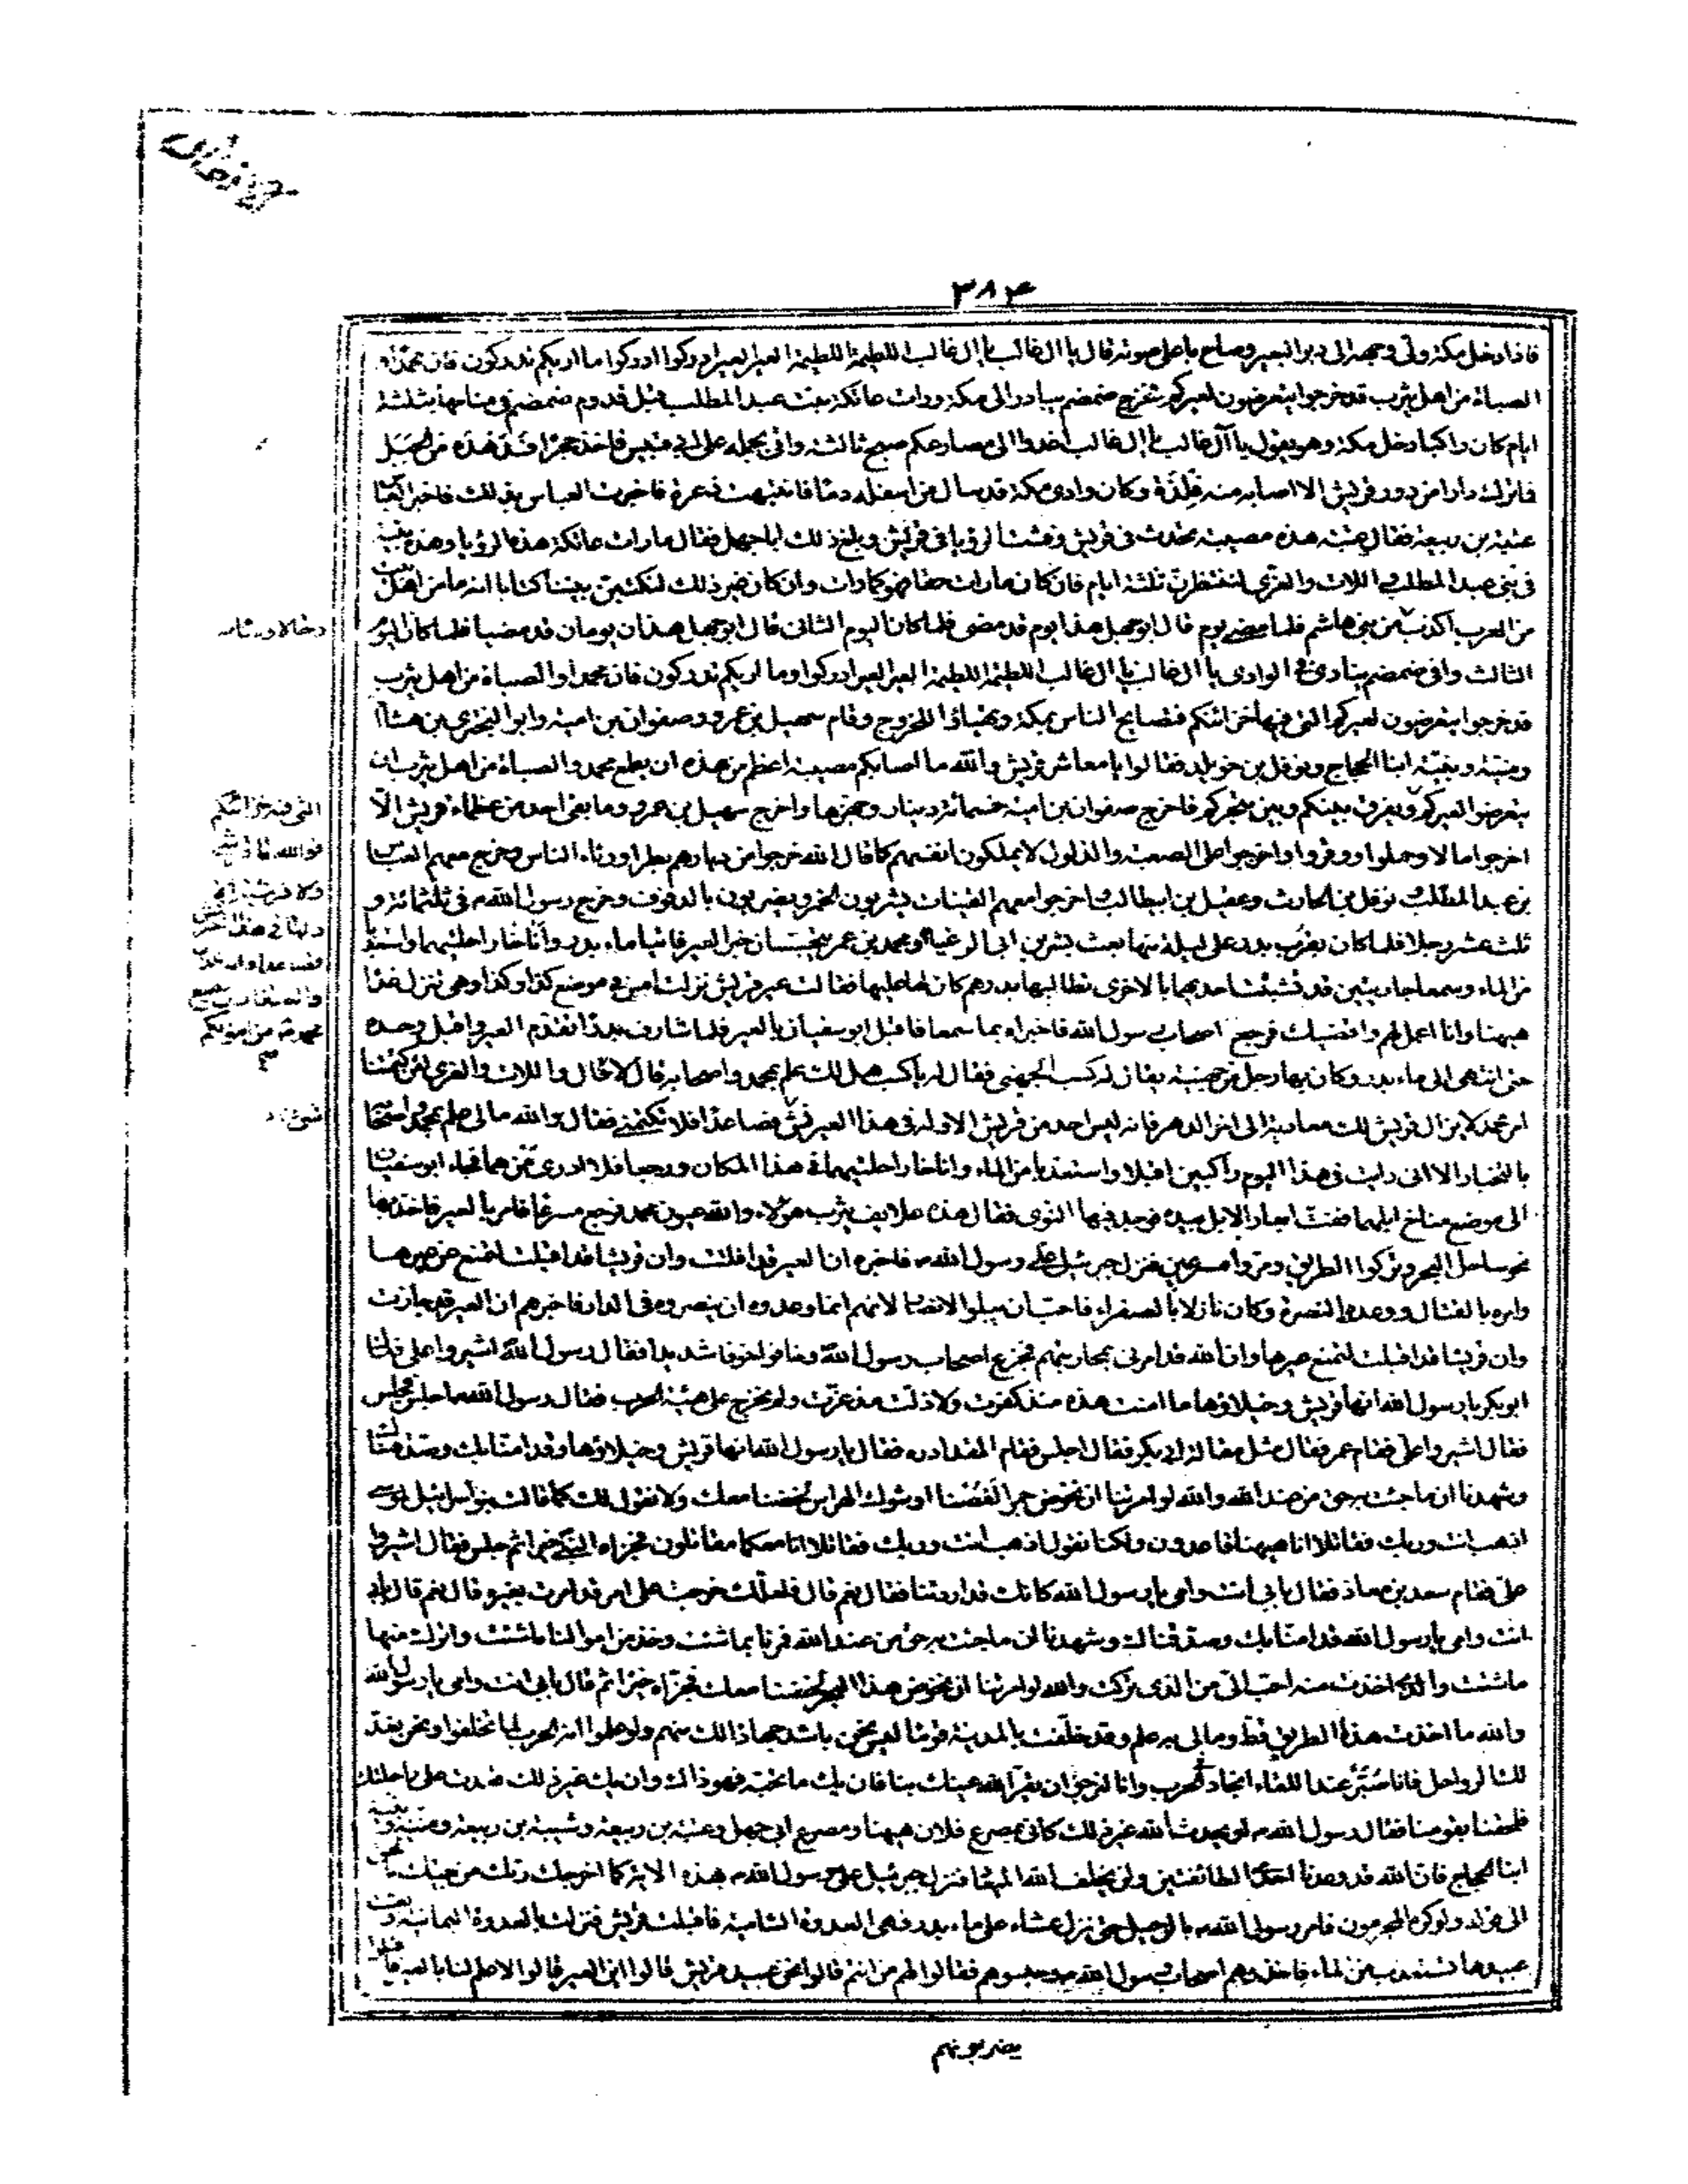 ٣٨٤
فاذا دخل مكة ولّى وجهه الى دبر البعير وصاح باعلى صوته فقال يا ال غالب يا ال غالب اللطيمة اللطيمة العير العير ادركوا ادركوا ما اريكم تدركون فان محمدا و
الصباة من اهل يثرب قد خرجوا يتعرضون لعيركم فخرج ضمضم يبادر الى مكة ورات عاتكة بنت عبد المطلب قبل قدوم ضمضم في منامها بثلثة
ايام كان راكبا دخل مكة وهو يقول يا آل غالب يا ال غالب اغدوا الى مصارعكم صبح ثالثة وافى بجمله على ابي قبيس فاخذ حجرا فدهده من الجبل
فما ترك دارا من دور قريش الا اصابه منه فلذة وكان وادى مكة قد سال من اسفله دما فانتبهت ذعرة فاخبرت العباس بذلك فاخبر العباس
عتبة بن ربيعة فقال عتبة هذه مصيبة تحدث في قريش وفشت الرؤيا في قريش وبلغ ذلك ابا جهل فقال ما رات عاتكة هذه الرؤيا وهذه نبية
في بني عبد المطلب واللات والعزى لننتظرن ثلثة ايام فان كان ما رات حقا فهو كما رات وان كان غير ذلك لنكتبن بيننا كتابا انه ما من اهل بيت
من العرب اكذب من بني هاشم فلما مضى يوم قال ابو جهل هذا يوم قد مضى فلما كان اليوم الثانى قال ابو جهل هذان يومان قد مضيا فلما كان اليوم
الثالث وافى ضمضم ينادى في الوادى يا ال غالب يا ال غالب اللطيمة اللطيمة العير العير ادركوا وما اريكم تدركون فان محمدا والصباة من اهل يثرب
قد خرجوا يتعرضون لعيركم التى فيها خزائنكم فتصايح الناس بمكة وتهياؤا للخروج وقام سهيل بن عمرو وصفوان بن امية وابو البخترى بن هشام
ومنبه ونبيه ابنا الحجاج ونوفل بن خويلد فقالوا يا معاشر قريش والله ما اصابكم مصيبة اعظم من هذه ان يطمع محمد والصباة من اهل يثرب ان
يتعرضوا لعيركم ويفرق بينكم وبين متجركم فاخرج صفوان بن امية خمسمائة دينار وجهز بها واخرج سهيل بن عمرو وما بقى احد من عظماء قريش الا
اخرجوا مالا وحملوا وقووا واخرجوا على الصعب والذلول لا يملكون انفسهم كما قال الله خرجوا من ديارهم بطرا ورئاء الناس وخرج معهم العباس
بن عبد المطلب ونوفل بن الحارث وعقيل بن ابيطالب واخرجوا معهم القينات يشربون الخمر ويضربون بالدفوف وخرج رسول الله في ثلثمائة و
ثلث عشر رجلا فلما كان بقرب بدر على ليلة منها بعث بشر بن ابى الرغباء ومحمد بن عمر يتجسسان خبر العير فاتيا ماء بدر واناخا راحلتيهما واستعذبا
من الماء وسمعا جاريتين قد تشبثت احديهما بالاخرى تطالبها بدرهم كان لها عليها فقالت عير قريش نزلت امس في موضع كذا وكذا وهى تنزل غدا
هيهنا وانا اعمل لهم واقضيك فرجع اصحاب رسول الله فاخبراه بما سمعا فاقبل ابو سفيان بالعير فلما شارف بدرا تقدم العير واقبل وحده
حتى انتهى الى ماء بدر وكان بها رجل من جهينة يقال له كسب الجهنى فقال له يا كسب هل لك علم بمحمد واصحابه قال لا قال واللات والعزى لئن كتمتنا
امر محمد لا يزال قريش لك معادية الى اخر الدهر فانه ليس احد من قريش الا وله في هذا العير نش فصاعدا فلا تكتمنى فقال والله مالى علم بمحمد واصحابه
بالتجار الا انى رايت في هذا اليوم راكبين اقبلا واستعذبا من الماء واناخا راحلتيهما في هذا المكان ورجعا فلا ادرى من هما فجاء ابو سفيان
الى موضع مناخ ابلهما ففت ابعار الابل بيده فوجد فيها النوى فقال هذه علايف يثرب هؤلاء والله عيون محمد فرجع مسرعا فامر بالعير فاخذ بها
نحو ساحل البحر وتركوا الطريق ومروا مسرعين فنزل جبرئيل على رسول الله فاخبره ان العير قد افلتت وان قريشا قد اقبلت لتمنع عن عيرها
وامره بالقتال ووعده النصرة وكان نازلا بالصفراء فاحب ان يبلو الانصار لانهم انما وعدوه ان ينصروه في الدار فاخبرهم ان العير قد جازت
وان قريشا قد اقبلت لتمنع عيرها وان الله قد امرنى بمحاربتهم فجزع اصحاب رسول الله وخافوا خوفا شديدا فقال رسول الله اشيروا على فقام
ابو بكر يا رسول الله انها قريش وخيلاؤها ما امنت هذه منذ كفرت ولا ذلت منذ عزت ولم نخرج على هيئة الحرب فقال رسول الله اجلس فجلس
فقال اشيروا على فقام عمر فقال مثل مقالة ابى بكر فقال اجلس فقام المقداد فقال يا رسول الله انها قريش وخيلاؤها وقد امنا بك وصدقناك
وشهدنا ان ما جئت به حق من عند الله والله لو امرتنا ان نخوض جمر الغضا او شوك الهراس لخضنا معك ولا نقول لك كما قالت بنو اسرائيل لموسى
اذهب انت وربك فقاتلا انا هيهنا قاعدون ولكنا نقول اذهب انت وربك فقاتلا انا معكما مقاتلون فجزاه النبي خيرا ثم جلس فقال اشيروا
على فقام سعد بن معاذ فقال بابي انت وامى يا رسول الله كانك قد اردتنا فقال نعم قال فلعلك خرجت على امر قد امرت بغيره قال نعم قال بابي
انت وامى يا رسول الله قد امنا بك وصدقناك وشهدنا ان ما جئت به حق من عند الله فمرنا بما شئت وخذ من اموالنا ما شئت واترك منها
ما شئت والذى اخذت منه احب الى من الذى تركت والله لو امرتنا ان نخوض هذا البحر لخضنا معك فجزاه خيرا ثم قال بابي انت وامى يا رسول الله
والله ما اخذت هذا الطريق قط ومالى به علم وقد خلفت بالمدينة قوما ليس نحن باشد جهادا لك منهم ولو علموا انه الحرب لما تخلفوا ونحن نعد
لك الرواحل فانا صبر عند اللقاء انجاد في الحرب وانا لنرجو ان يقر الله عينك بنا فان يك ما تحب فهو ذاك وان يك غير ذلك قعدت على راحلتك
فلحقت بقومنا فقال رسول الله او يحدث الله غير ذلك كانى بمصرع فلان هيهنا ومصرع ابى جهل وعتبة بن ربيعة وشيبة بن ربيعة ومنبه ونبيه
ابنا الحجاج فان الله قد وعدنى احدى الطائفتين ولن يخلف الله الميعاد فنزل جبرئيل على رسول الله بهذه الاية كما اخرجك ربك من بيتك بالحق
الى قوله ولو كره المجرمون فامر رسول الله بالرحيل حتى نزل عشاء على ماء بدر وهى العدوة الشامية فاقبلت قريش فنزلت بالعدوة اليمانية وبعثت
عبيدها تستعذب من الماء فاخذوهم اصحاب رسول الله وحبسوهم فقالوا لهم من انتم قالوا نحن عبيد قريش قالوا اين العير قالوا لا علم لنا بالعير فاقبلوا
يضربونهم